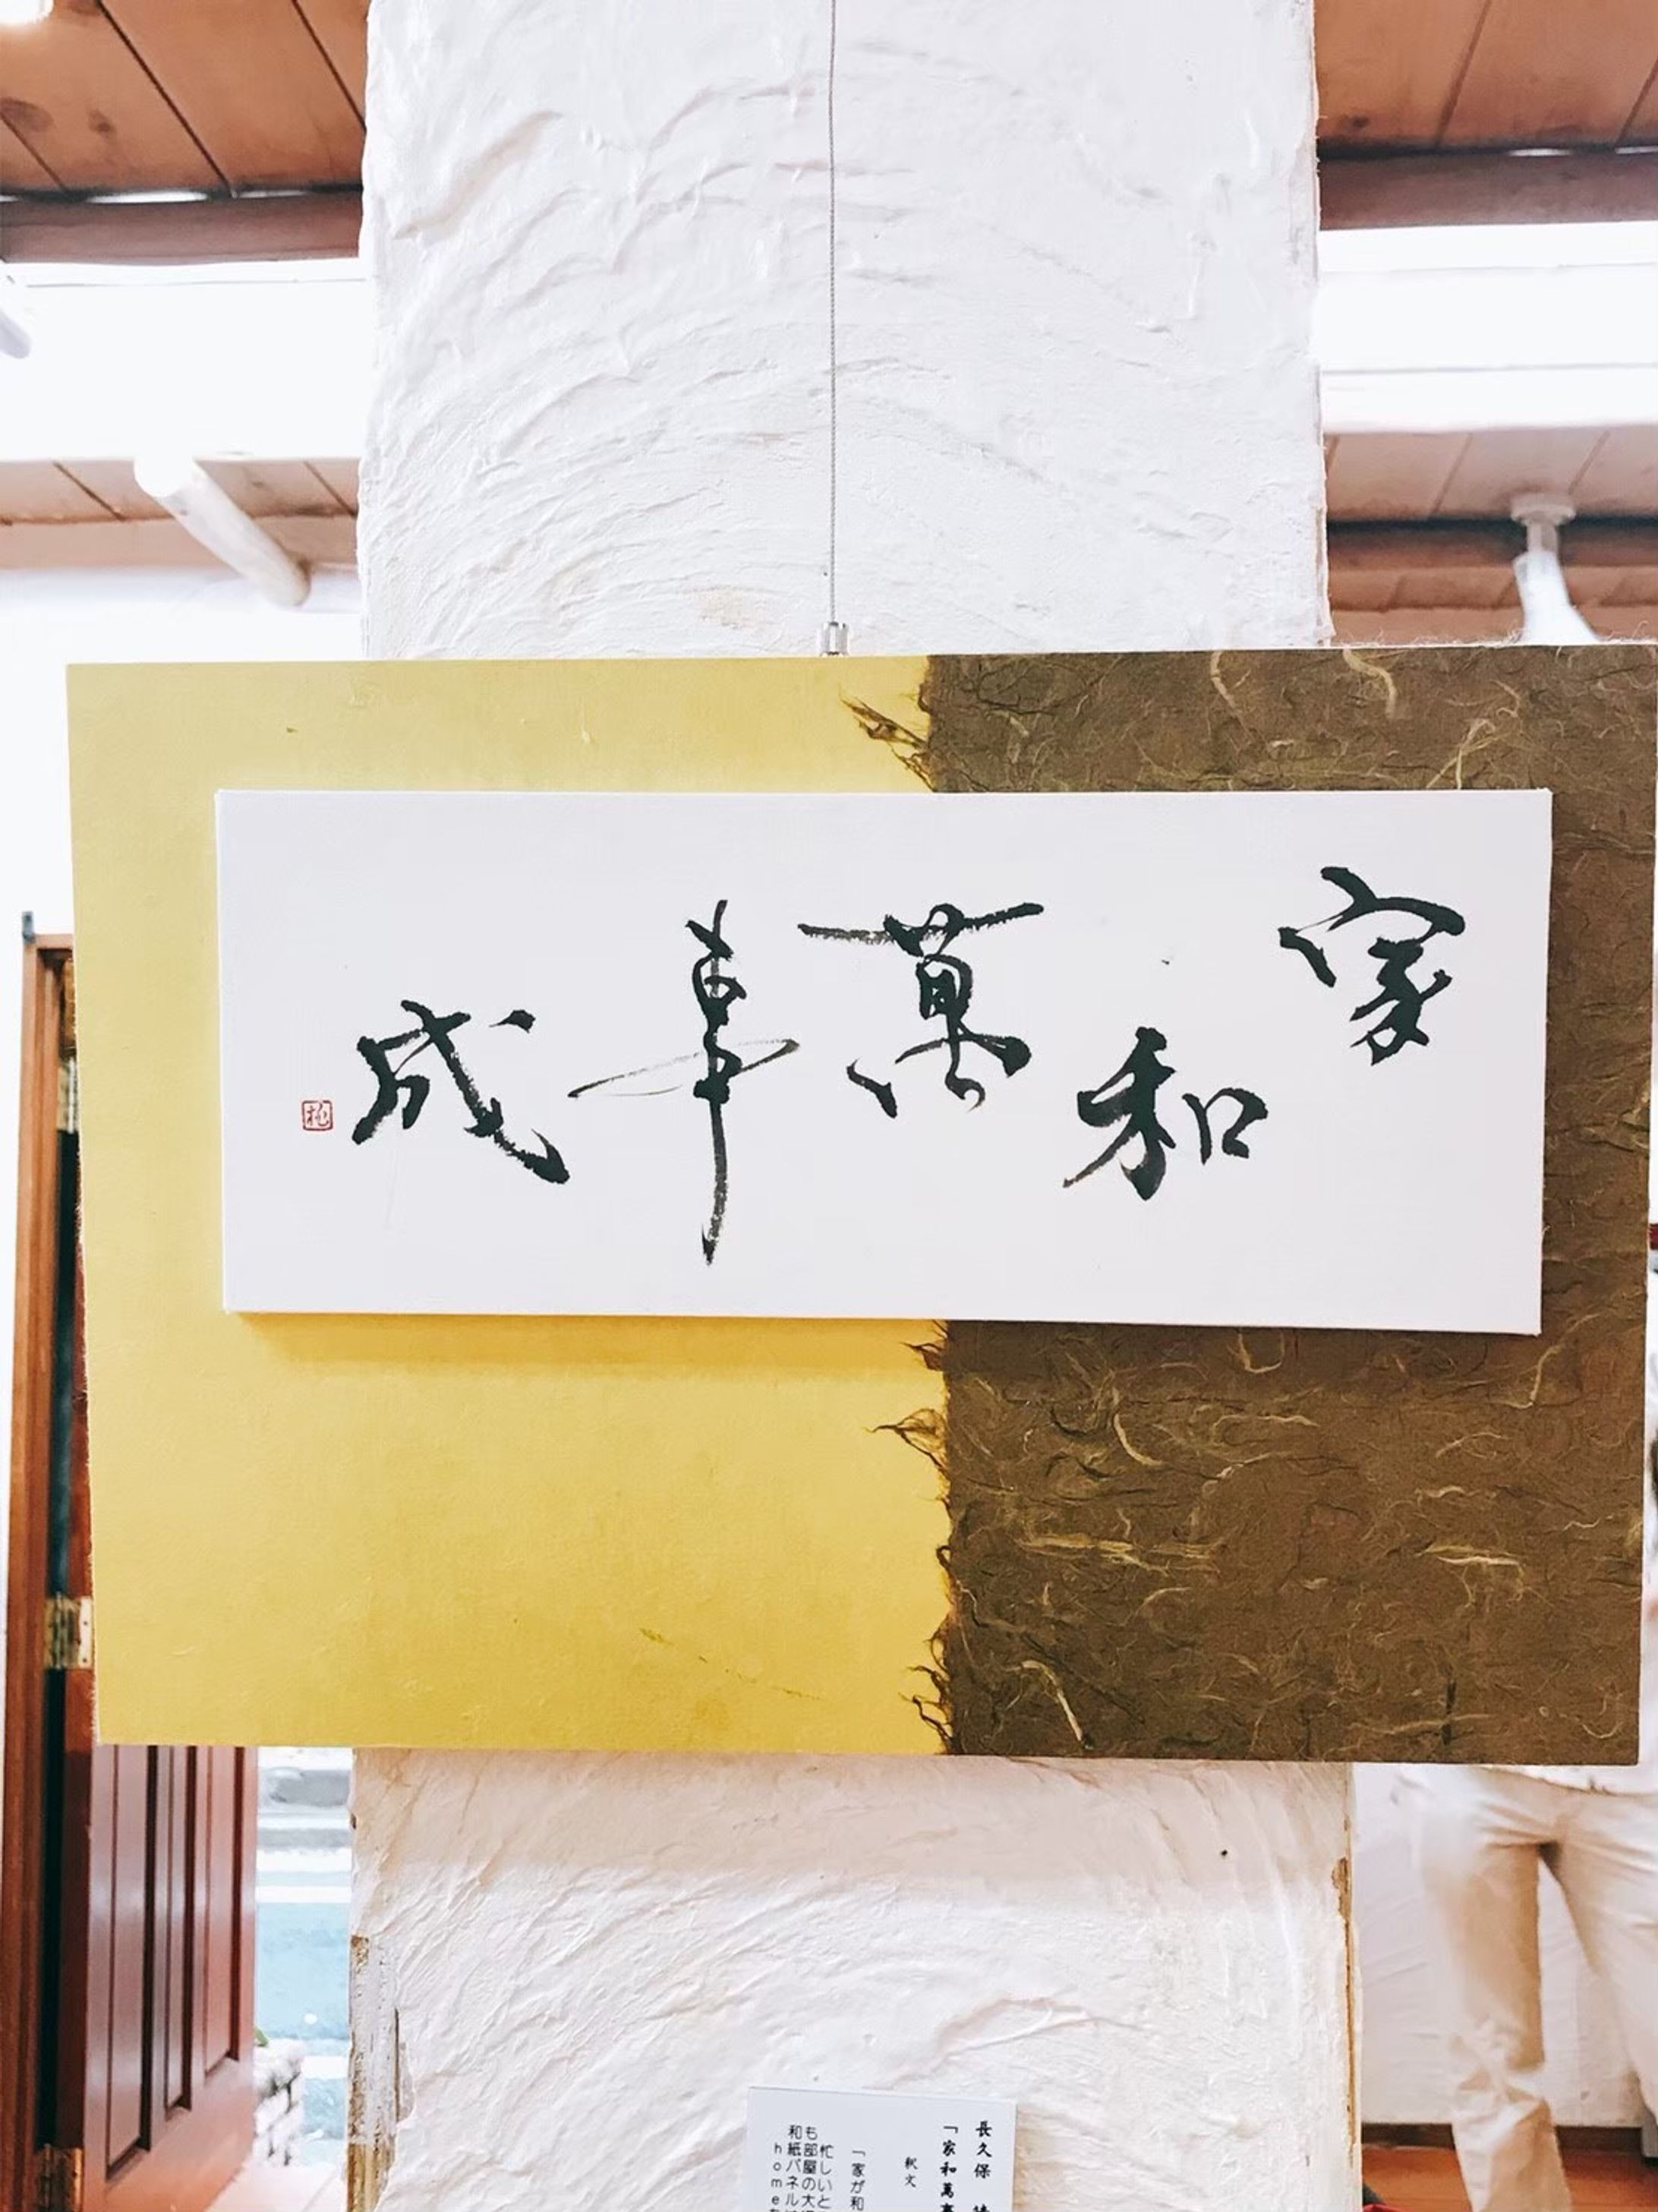 家和萬事成
長久保
「家和萬事
釈文
「家が和
忙しいと
も部屋の大
和紙パネル
home